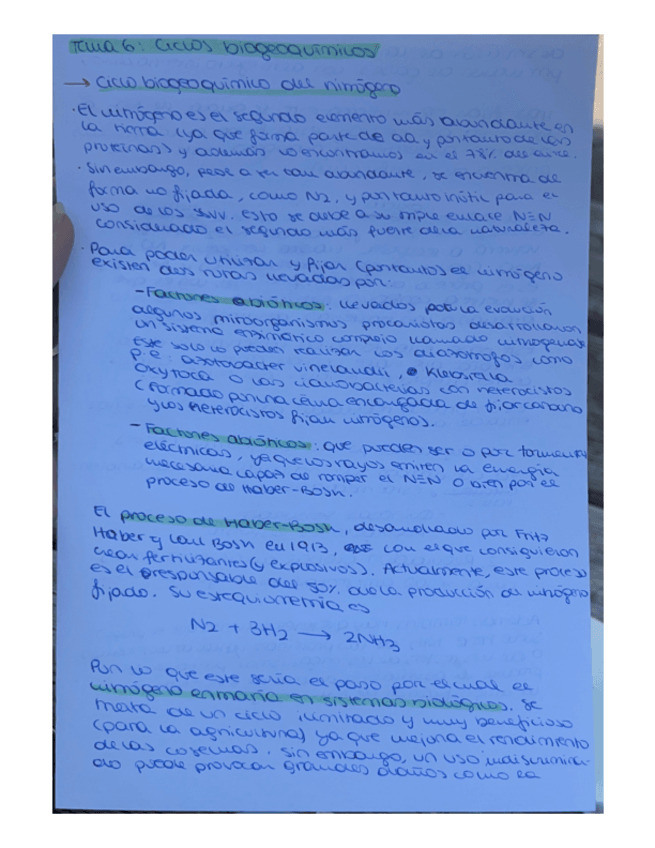 Tema 6: Ciclos biogeoquímicos
→ Ciclo biogeoquímico del nitrógeno
· El nitrógeno es el segundo elemento más abundante en
la tierra (ya que forma parte de aa y por tanto de las
proteínas) y además lo encontramos en el 78% del aire.
· Sin embargo, pese a ser tan abundante, se encuentra de
forma no fijada, como N2, y por tanto inútil para el
uso de los SSVV. Esto se debe a su triple enlace N≡N
considerado el segundo más fuerte de la naturaleza.
· Para poder utilizar y fijar (por tanto) el nitrógeno
existen dos rutas llevadas por:
- Factores abióticos: llevados por la evolución
algunos microorganismos procariotas desarrollaron
un sistema enzimático complejo llamado nitrogenasa
Este solo lo pueden realizar los diazótrofos como
p.e: azotobacter vinelandii, Klebsiella
oxytoca o las cianobacterias con heterocistos
(formado por una célula encargada de fijar carbono
y los heterocistos fijan nitrógeno).
- Factores abióticos: que pueden ser o por tormentas
eléctricas, ya que los rayos emiten la energía
necesaria capaz de romper el N≡N o bien por el
proceso de Haber-Bosh.
El proceso de Haber-Bosh, desarrollado por Fritz
Haber y Carl Bosh en 1913, con el que consiguieron
crear fertilizantes (y explosivos). Actualmente, este proceso
es el responsable del 50% de la producción de nitrógeno
fijado. Su estequiometría es
N2 + 3H2 → 2NH3
Por lo que este sería el paso por el cual el
nitrógeno entraría en sistemas biológicos. Se
trata de un ciclo ilimitado y muy beneficioso
(para la agricultura) ya que mejora el rendimiento
de las cosechas. Sin embargo, un uso indiscrimina-
do puede provocar grandes daños como la